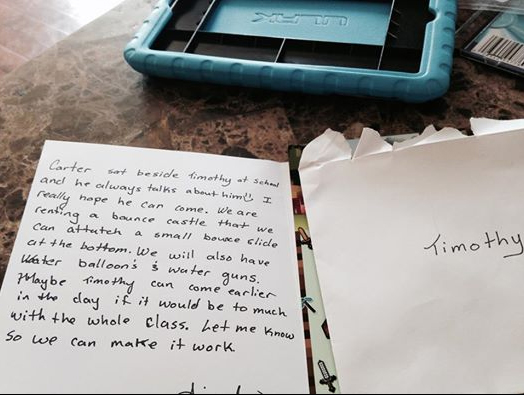 Carter sat beside Timothy at school
and he always talks about him! I
really hope he can come. We are
renting a bounce castle that we
can attatch a small bouce slide
at the bottom. We will also have
Water balloon's & water guns.
Maybe Timothy can come earlier
in the day if it would be to much
with the whole class. Let me know
So we can make it work.
Timothy